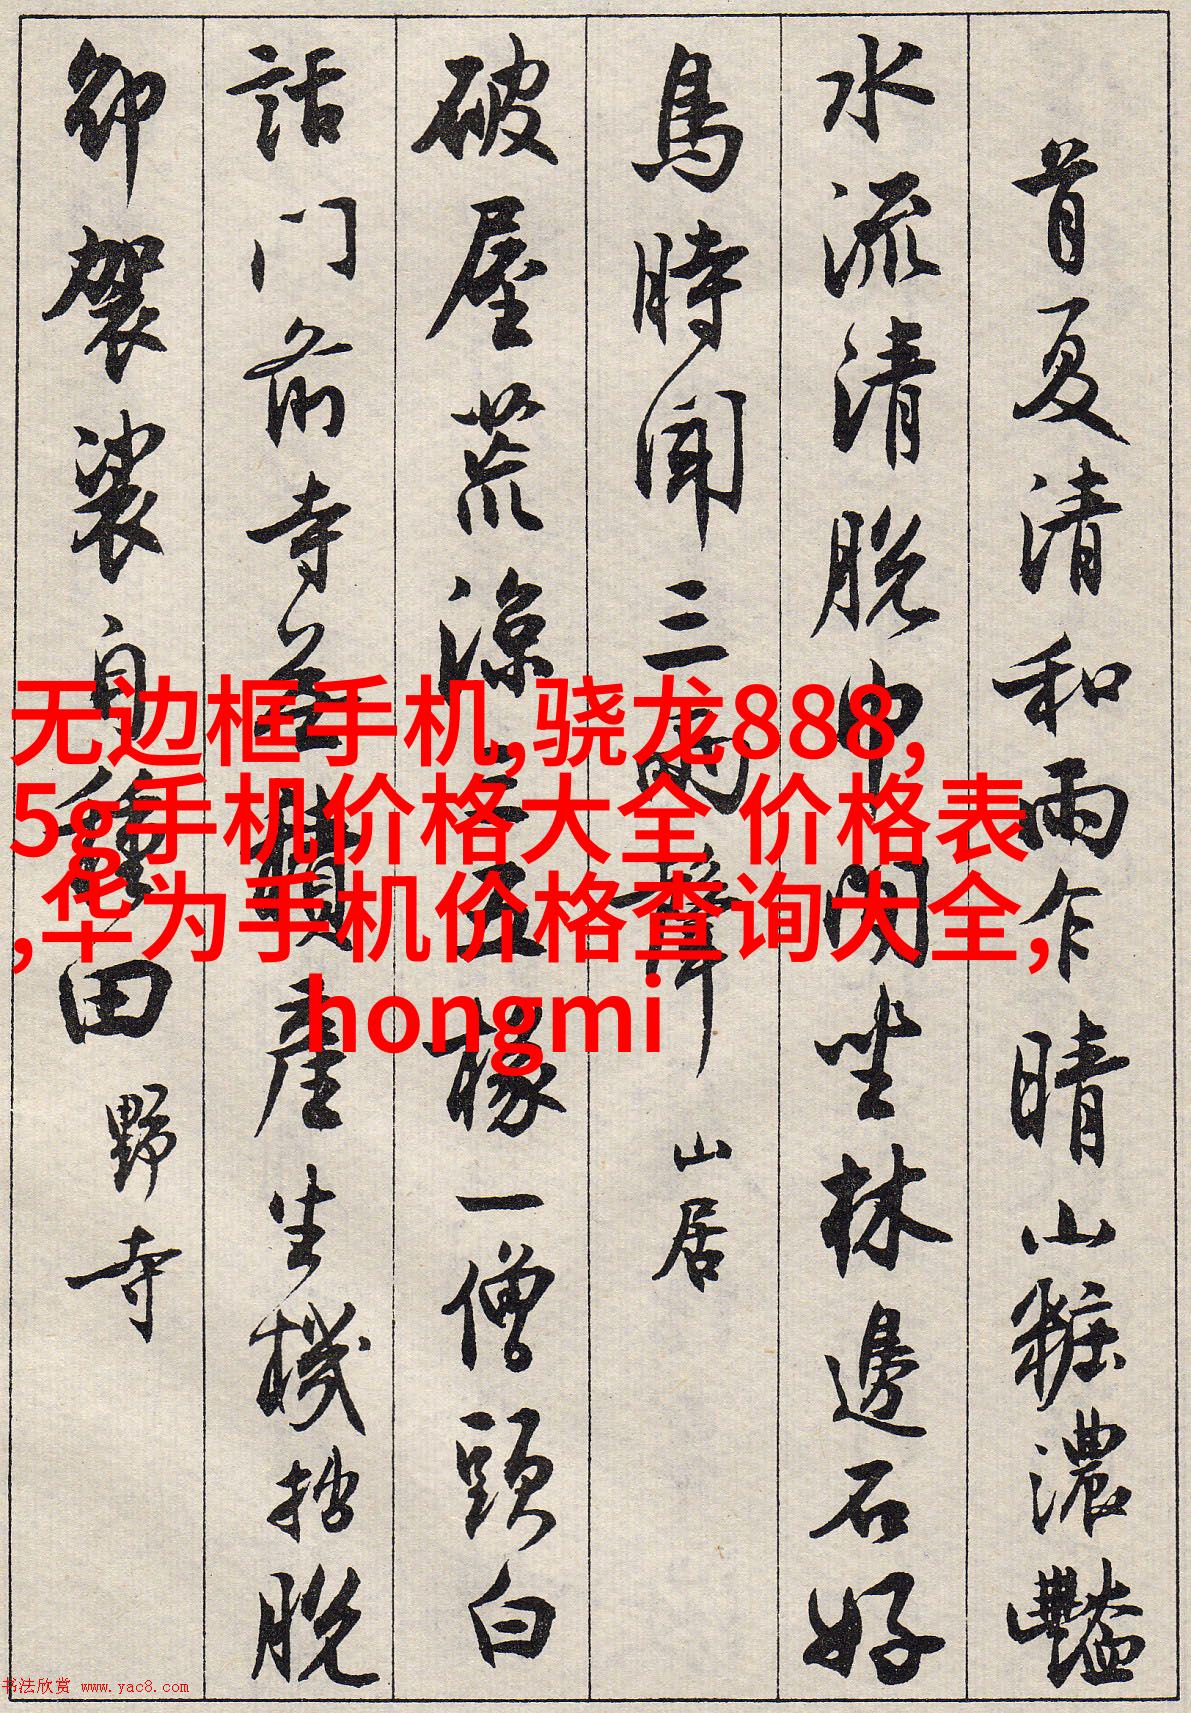 首夏清和雨乍晴山粧濃豔
水流清脱巾閑坐林邊石好
鳥時聞三両聲 山居
破屋荒涼三五椽一僧頭白
話門前寺無積產生機拙脱
卸袈裟自種田 野寺
无边框手机,骁龙888,
5g手机价格大全 价格表
,华为手机价格查询大全,
hongmi
书法欣赏 www.yac8.com